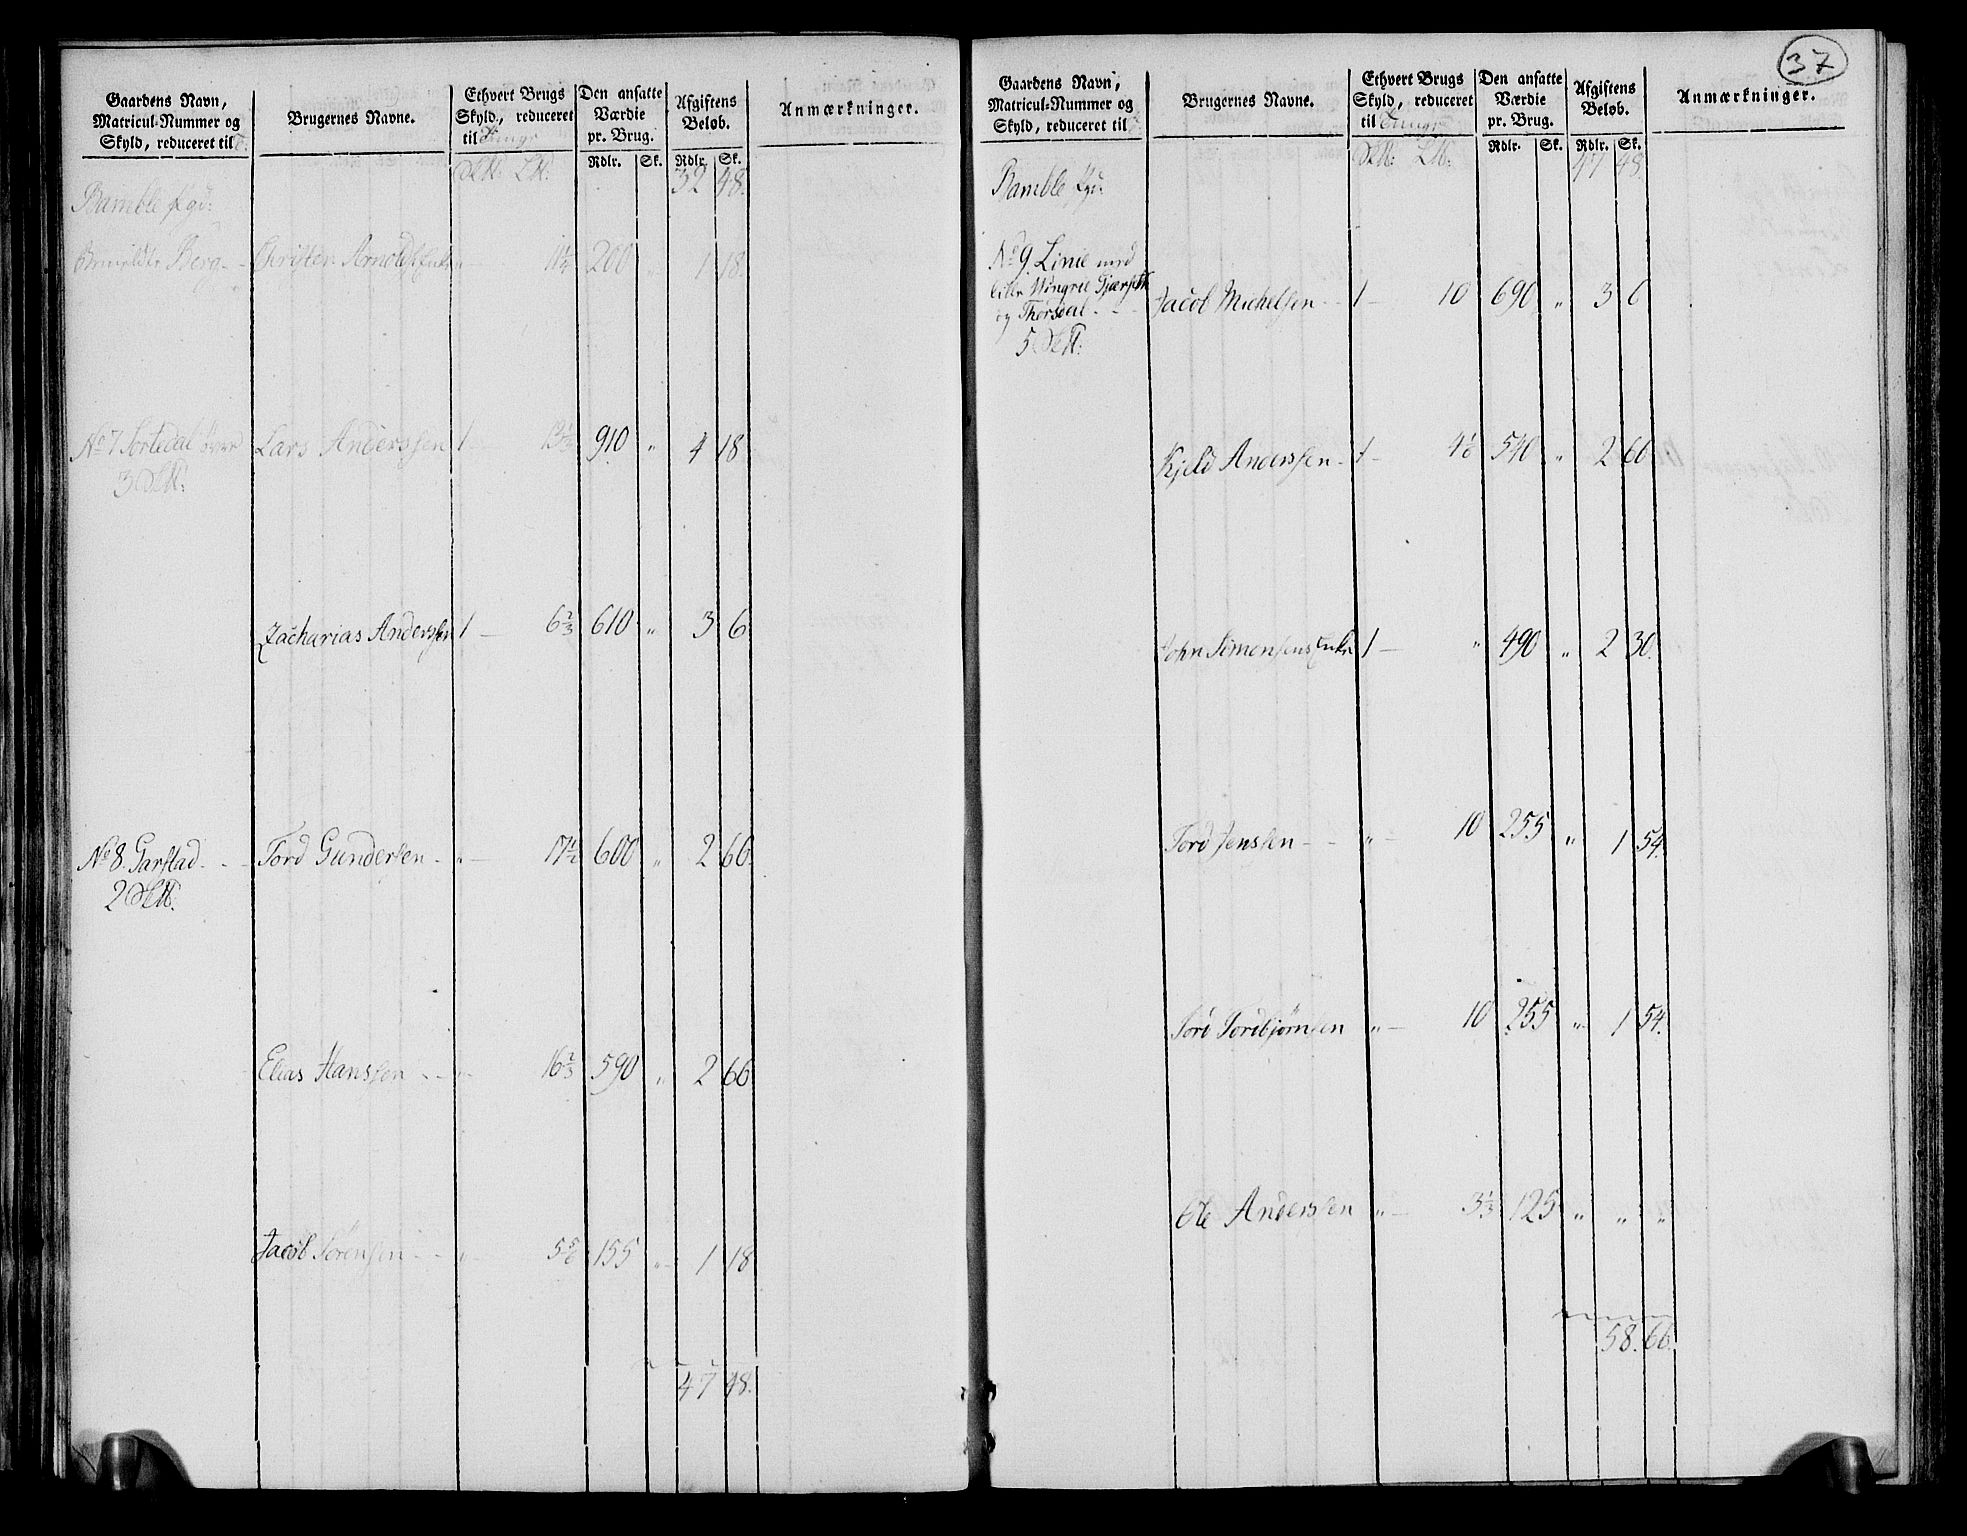 Gaardens Navn, Matricul-Nummer og Skyld, reduceret til
Brugernes Navne.
Ethvert Brugs Skyld, reduceret til
Den ansatte Værdie pr. Brug.
Afgiftens Beløb.
Anmærkninger.
Rdlr. Sk. Rdlr. Sk.
32 48.
Bamble
Berg Christen 11¼ 200 " 1 18.
No 7 Sortedal øvre Lars Anderssen 1 13½ 910 " 4 18
3
Zacharias Anderssen 1 6⅔ 610 " 3 6
No 8. Garstad Tord Gundersen " 17½ 600 " 2 66.
2
Elias Hanssen " 16⅔ 590 " 2 66
Jacob Sørensen " 5⅚ 155 " 1 18
47 48.
37
Gaardens Navn, Matricul-Nummer og Skyld, reduceret til
Brugernes Navne.
Ethvert Brugs Skyld, reduceret til
Den ansatte Værdie pr. Brug.
Afgiftens Beløb.
Anmærkninger.
Rdlr. Sk. Rdlr. Sk.
47 48
Bamble
No 9. Linie med
lille
og Thorsdal Jacob Michelsen 1 10 690 " 3 6
5
Kjeld Anderssen 1 540 " 2 66
John Simonsens Enke 1 " 490 " 2 30.
Tord Jenssen " 10 255 " 1 54.
Tord Tordbjørnsen " 10 255 " 1 54.
Ole Anderssen " 3⅓ 125 " " "
58. 66.